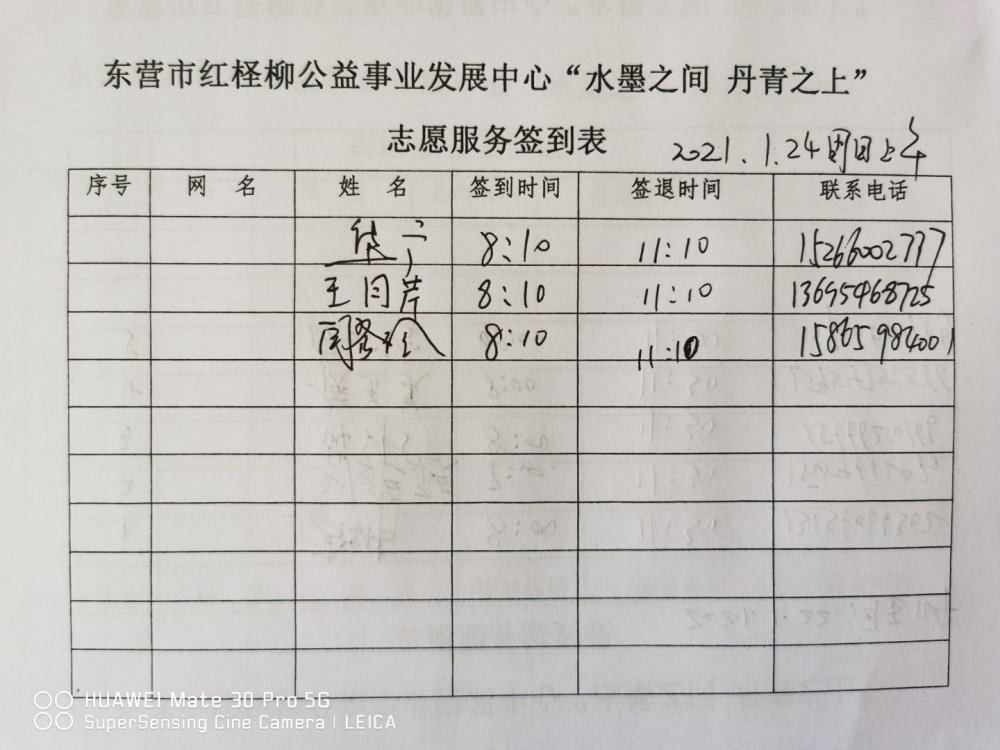 东营市红柽柳公益事业发展中心“水墨之间 丹青之上”
志愿服务签到表 2021.1.24周日上午
序号 网 名 姓 名 签到时间 签退时间 联系电话
8:10 11:10 15266002777
8:10 11:10 13695468725
8:10 11:10 15865984001
HUAWEI Mate 30 Pro 5G
SuperSensing Cine Camera | LEICA